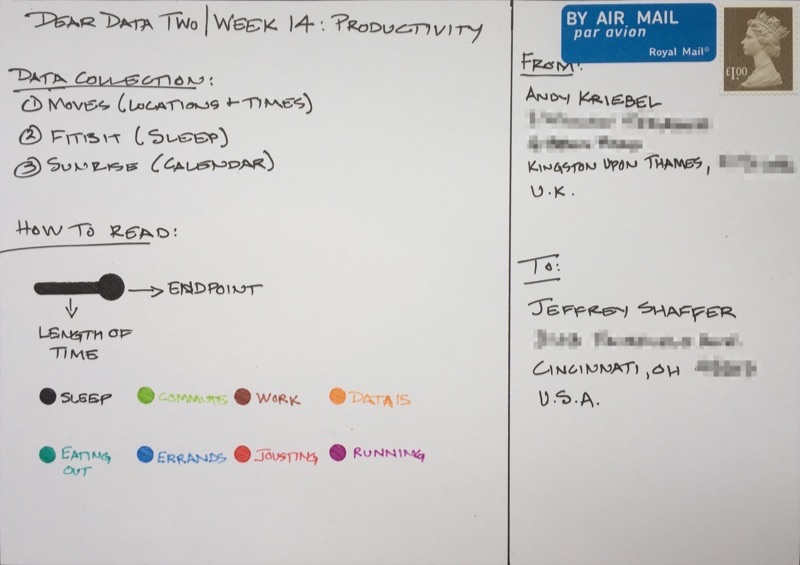 DEAR DATA TWO | WEEK 14: PRODUCTIVITY
DATA COLLECTION:
① MOVES (LOCATIONS + TIMES)
② FITIBIT (SLEEP)
③ SUNRISE (CALENDAR)
HOW TO READ:
ENDPOINT
LENGTH OF
TIME
SLEEP
COMMUTE
WORK
DATA15
EATING
OUT
ERRANDS
JOUSTING
RUNNING
BY AIR MAIL
par avion
Royal Mail®
£1.00
FROM:
ANDY KRIEBEL
KINGSTON UPON THAMES,
U.K.
TO:
JEFFREY SHAFFER
CINCINNATI, OH
U.S.A.